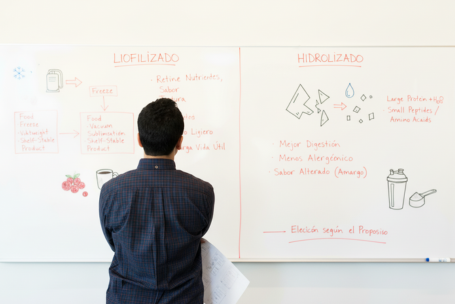 LIOFILIZADO
Freeze
Food
Vacuum
Sublimation
Shelf-Stable
Product
Food
Freeze
Shelf-Stable
Product
· Retiene Nutrientes,
Sabor
Ligero
Vida Útil
HIDROLIZADO
Large Protein
Small Peptides /
Amino Acids
Mejor Digestión
Menos Alergénico
· Sabor Alterado (Amargo)
Elección según el Propósito